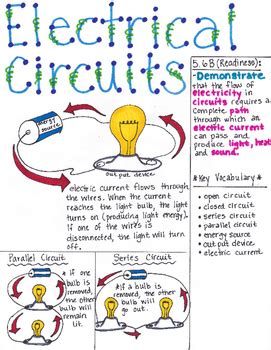 Electrical
Circuits
5.6B (Readiness):
-Demonstrate
that the flow of
electricity in
circuits requires a
complete path
through which an
electric current
can pass and
produce light, heat
and sound.
energy
source
out put device
electric current flows through
the wires. When the current
reaches the light bulb, the light
turns on (producing light energy).
if one of the wires is
disconnected, the light will turn
off.
*Key Vocabulary*
• open circuit
• closed circuit
• series circuit
• parallel circuit
• energy source
• out put device
• electric current
Parallel Circuit
* If one
bulb is
removed,
the other
bulb will
remain
lit.
Series Circuit
*if a
bulb is
removed, the
other bulb
will go out.